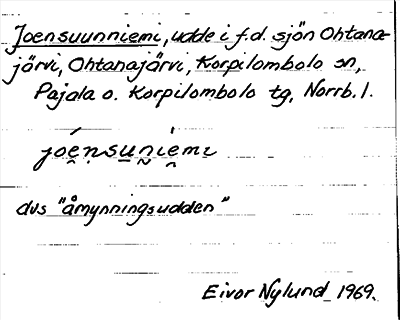 Joensuunniemi, udde i f.d. sjön Ohtana-
järvi, Ohtanajärvi, Korpilombolo sn,
Pajala o. Korpilombolo tg, Norrb. l.
jóe̮n̮su̲n̮ìe̮mi
dvs "åmynningsudden"
Eivor Nylund 1969.